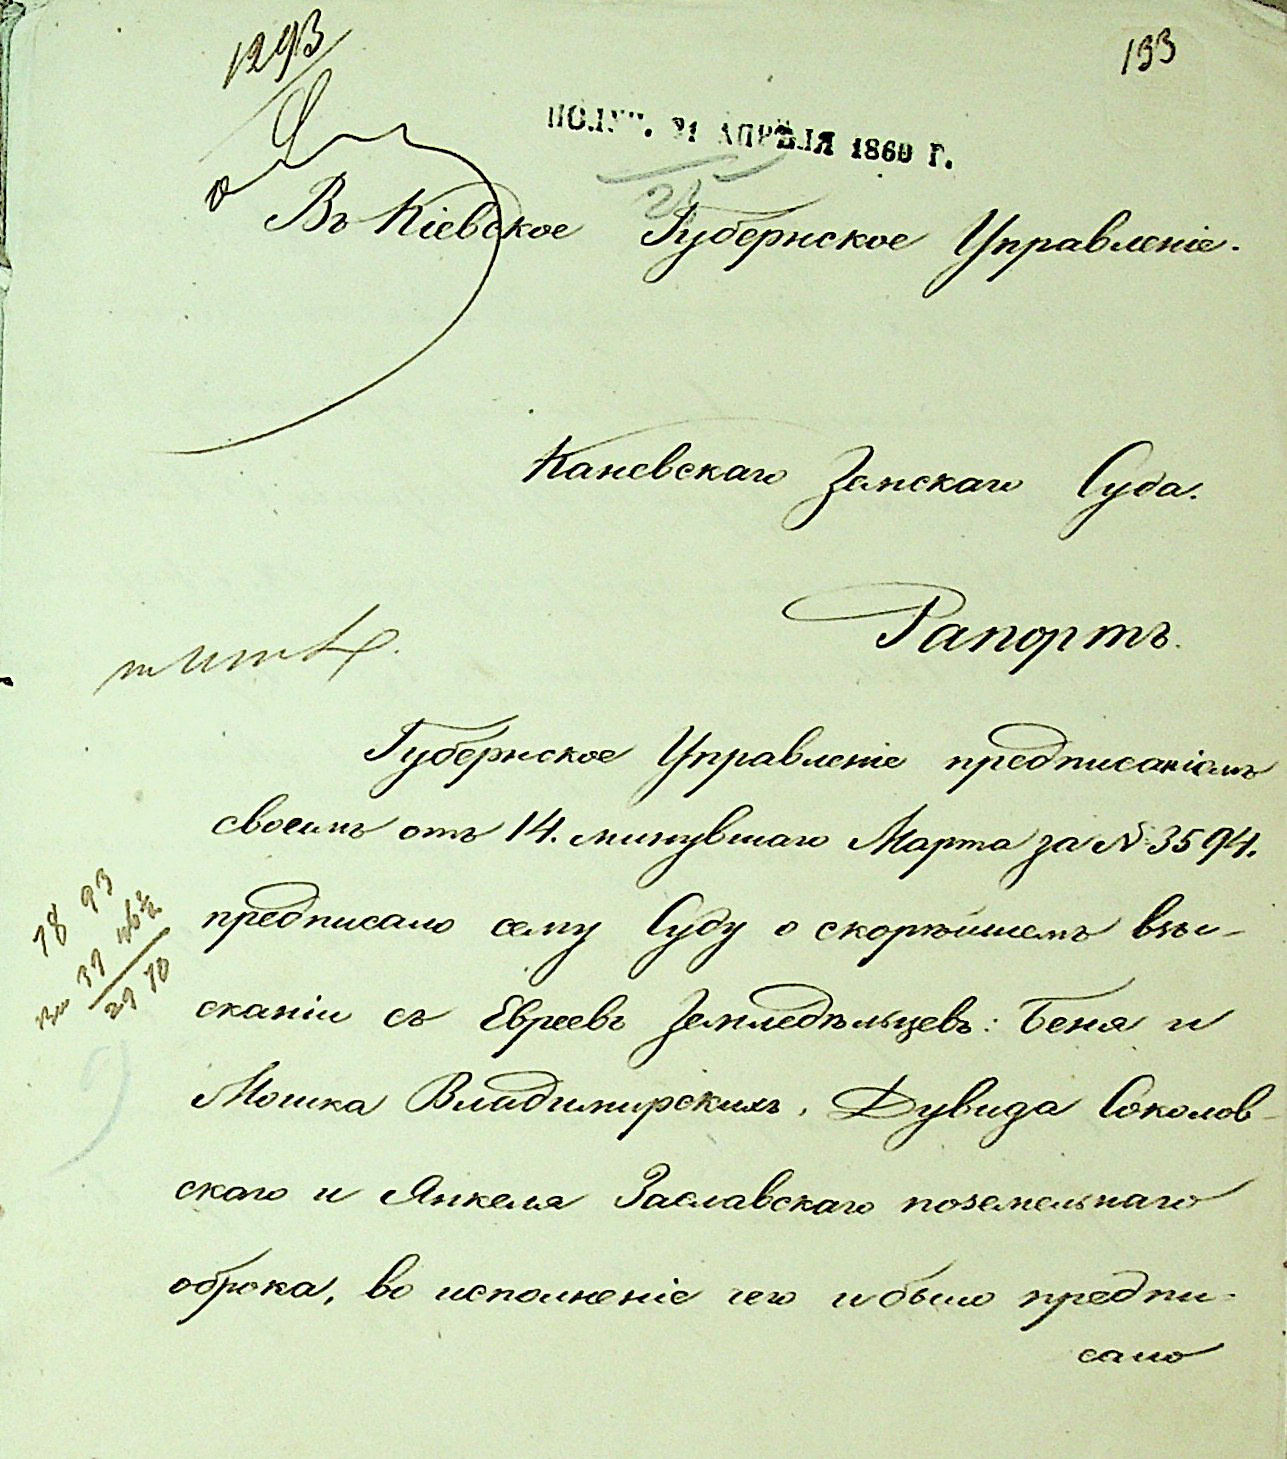 1293
193
ПОЛУЧ. 21 АПРѢЛЯ 1860 Г.
Въ Кіевское Губернское Управленіе.
Каневскаго Земскаго Суда.
Рапортъ.
Губернское Управленіе предписаніемъ
своимъ отъ 14. минувшаго Марта за № 3594.
предписало сему Суду о скорѣйшемъ взы-
сканіи съ Евреевъ Земледѣльцевъ: Беня и
Мошка Владимирскихъ, Дувида Соколов-
скаго и Янкеля Заславскаго поземельнаго
оброка, во исполненіе чего и было предпи-
сано
78 93